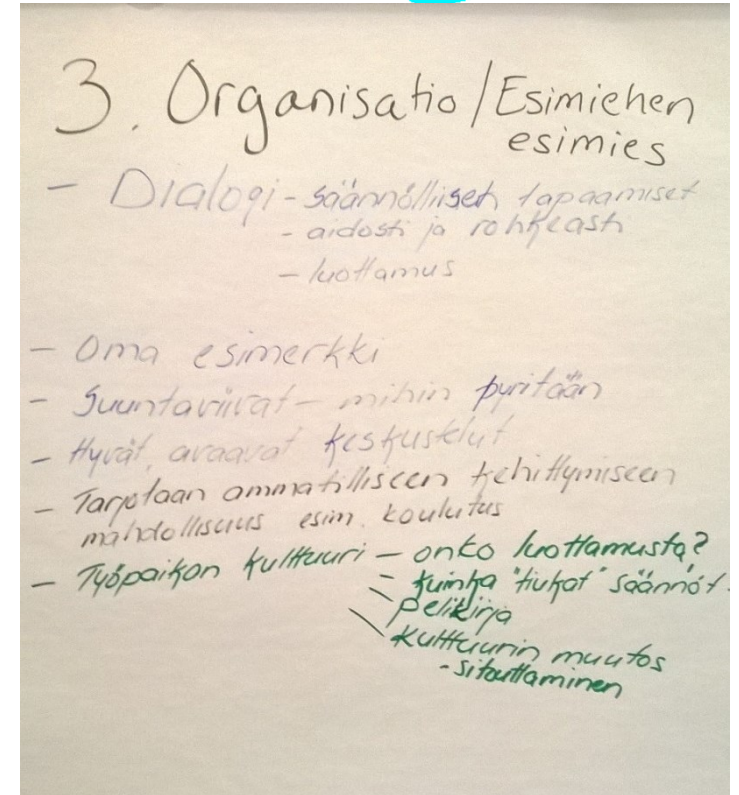 3. Organisatio / Esimiehen
esimies
- Dialogi - säännölliset tapaamiset
- aidosti ja rohkeasti
- luottamus
- Oma esimerkki
- Suuntaviivat - mihin pyritään
- Hyvät, avaavat keskustelut
- Tarjotaan ammatilliseen kehittymiseen
mahdollisuus esim. koulutus
- Työpaikan kulttuuri - onko luottamusta?
- kuinka "tiukat" säännöt
- pelikirja
- kulttuurin muutos
- sitouttaminen